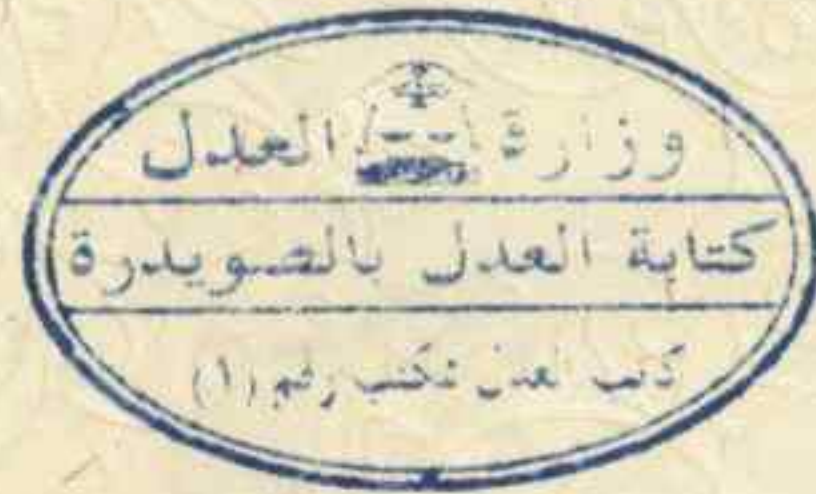 وزارة العدل
كتابة العدل بالصويدرة
كاتب العدل مكتب رقم (١)